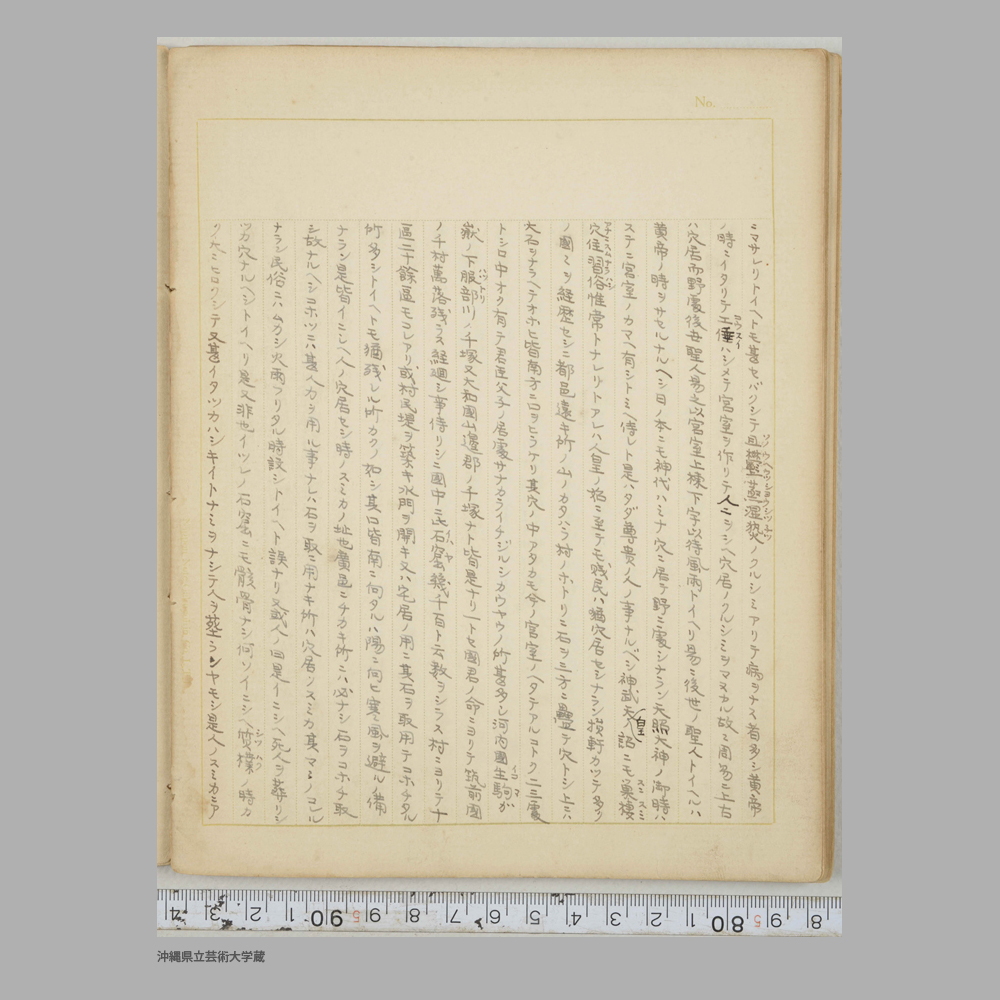 No.
ニマサレリトイヘトモ甚セバクシテ且横蟄蒸湿熱ノクルシミアリテ病ヲナス者多シ黄帝
ノ時ニイタリテ工倕ハシメテ宮室ヲ作リテ人ニヲシヘ穴居ノクルシミヲマヌカル故ニ周易ニ上古
ハ穴居而野處後世聖人易之以宮室上棟下宇以待風雨トイヘリ易ニ後世ノ聖人トイヘルハ
黄帝ノ時ヲサセルナルヘシ日ノ本ニモ神代ハミナ穴ニ居テ野ニ處シナラン天照大神ノ御時ハ
ステニ宮室ノカマヘ有シトミヘ侍レト是ハタダ尊貴ノ人ノ事ナルベシ神武天皇ノ詔ニモ巣棲
穴住習俗惟常トナレリトアレハ人皇ノ始ニ至テモ賤民ハ猶穴居セシナラン 軒カツテ多リ
ノ國ミツ経歴セシニ都邑遠キ所ノ山ノカタハラ村ノホトリニ石ヲ三方ニ疊テ穴トシ上ニハ
大石ヲナラヘテオホヒ皆南方ニ口ヲヒラケリ其穴ノ中アタカモ今ノ宮室ノヘタテアルコトク二三處
トシロ中オク有テ君臣父子ノ居處サナカライチジルシカウヤウノ所甚多シ河内國生駒カ
嶽ノ下服部川ノ千塚又大和國山邊郡ノ千塚ナト皆是ナリ一トセ國君ノ命ニヨリテ筑前國
ノ千村萬落残ラス経廻シ事侍リシニ國中ニ此石窟幾千百ト云数ヲシラス村ニヨリテナ
區二十餘區モコレアリ或村民堤ヲ築キ水門ヲ開キ又ハ宅居ノ用ニ其石ヲ取用テコホチタル
所多シトイヘトモ猶残レル所カクノ如シ其口皆南ニ向タルハ陽ニ向ヒ寒風ヲ避ルノ備
ナラン是皆イニシヘ人ノ穴居セシ時ノスミカノ址也農邑ニチカキ所ニハ必ナシ石ヲコホチ取
シ故ナルヘシコホツニハ甚人力ヲ用ル事ナレハ石ヲ取ニ用ナキ所ハ穴居ノスミカ其マヽノコレル
ナラン民俗ニハムカシ火雨フリタル時設シトイヘト誤ナリ又或人ノ曰是イニシヘ死人ヲ葬リシ
ツカ穴ナルヘシトイヘリ是又非也イツレノ石窟ニモ骸骨ナシ何ソイニシヘ質樸ノ時カ
ク穴ニヒロクシテ又甚イタツカハシキイトナミヲナシテ人ヲ葬ランヤモシ是人ノスミカニア
沖縄県立芸術大学蔵